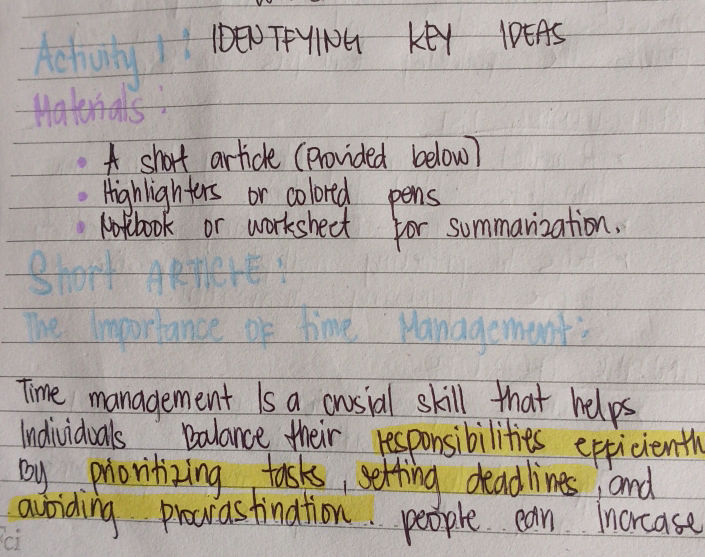 Activity 1: IDENTFYING KEY IDEAS
Materials:
• A short article (Provided below)
• Highlighters or colored pens
• Notebook or worksheet for summarization.
Short ARTICLE:
The Importance of time Management:
Time management Is a crusial skill that helps
Individuals Balance their responsibilities
By prioritizing tasks, setting deadlines, and
avoiding procrastination. people can increase